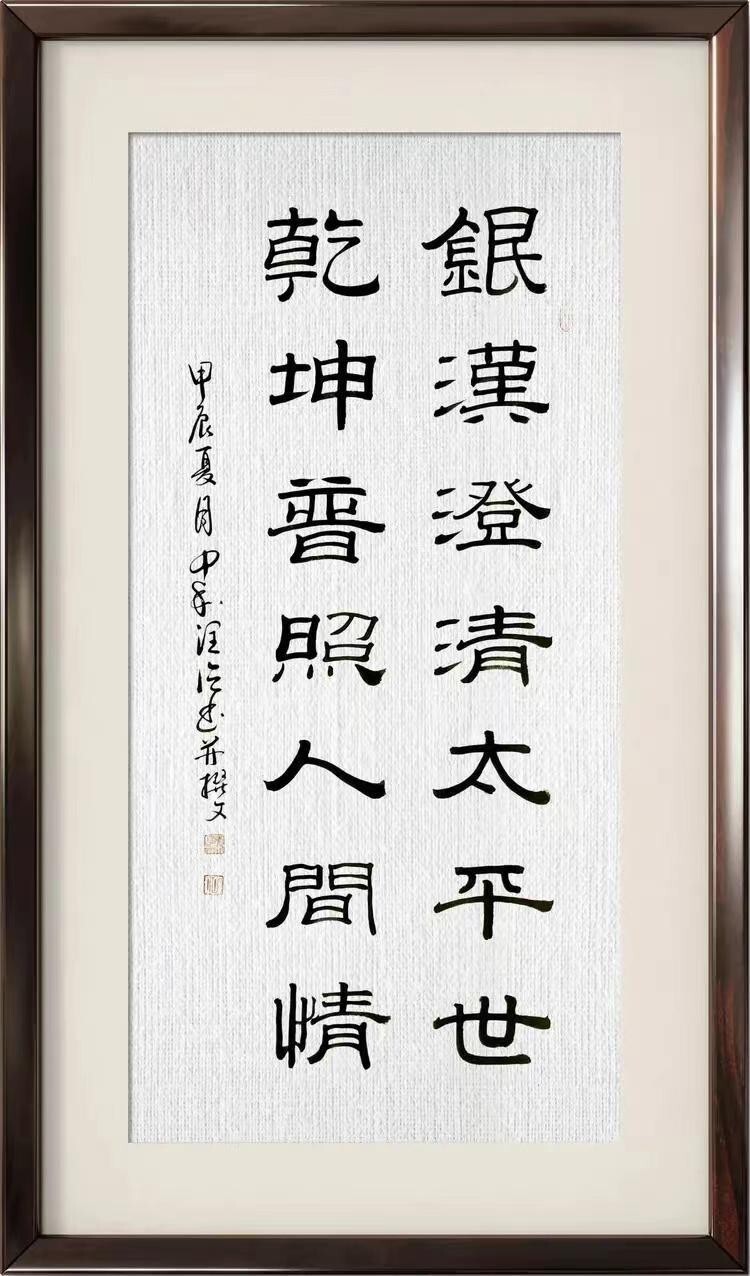 銀漢澄清太平世
乾坤普照人間情
甲辰夏月 并撰文